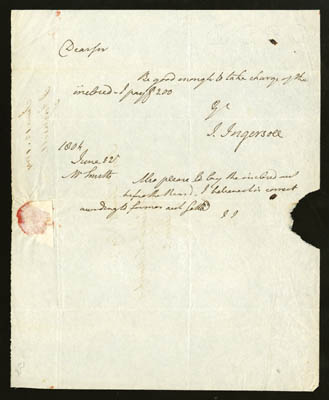 Dear Sir
Be good enough to take charge of the
inclosed - I pay $200
Yr
J. Ingersoll
1804
June 22
Mr Smith
Also please to lay the inclosed acct
before the Board. I believe it is correct
according to former acct
J I